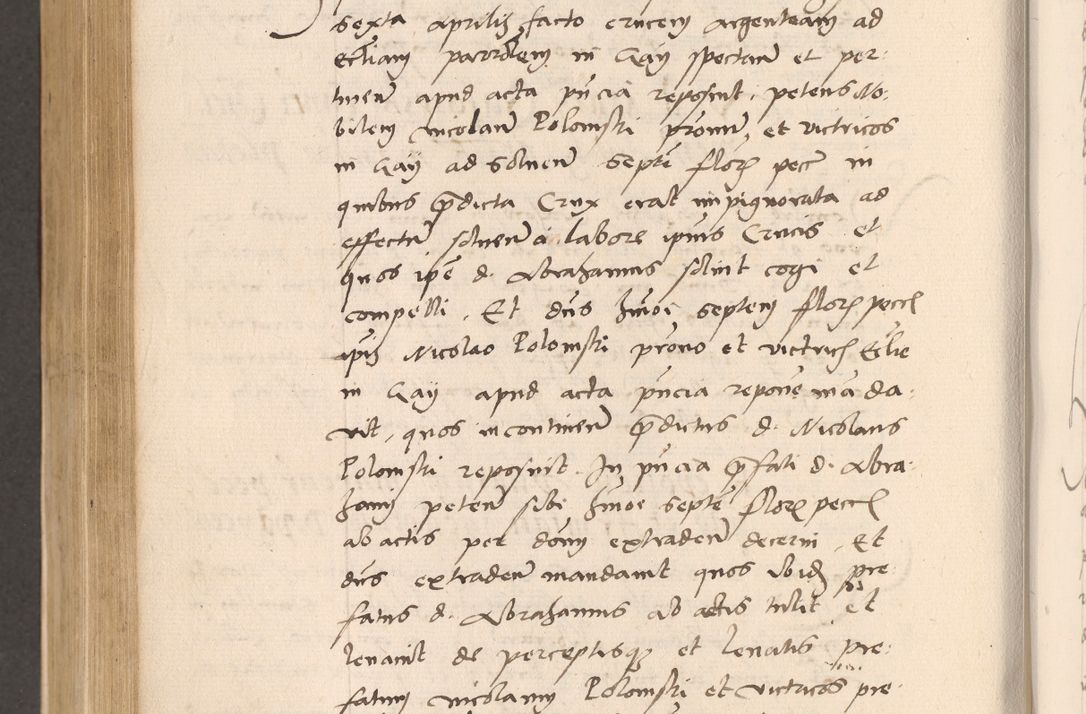 sexta Aprilis facto crucem argenteam ad
eccliam parochlem in Gay spectan et per-
tinen apud acta pncia reposuit, petens No-
bilem Nicolaum Polomski pronum et victricos
in Gay ad solven septe floz pecc in
quibus predicta Crux erat impignorata ad
effectum solven a labore ipius Crucis et
quos ipe d. Abrahamus soluit cogi et
compelli. Et dns hmoi septem floz pecch
ipm Nicolao Polomski prono et victrich Ecclie
in Gay apud acta pncia repone manda-
vit, quos incontinen predictus d. Nicolaus
Polomski reposuit. In pncia prefati d. Abra-
hami peten sibi hmoi septe floz pecch
ab actis per dnum extraden decerni. Et
dns extraden mandavit quos ibidem pre-
fatus d. Abrahamus ab actis tulit et
levavit de perceptisque et levatis pre-
fatum Nicolaum Polomski et victricos pre-